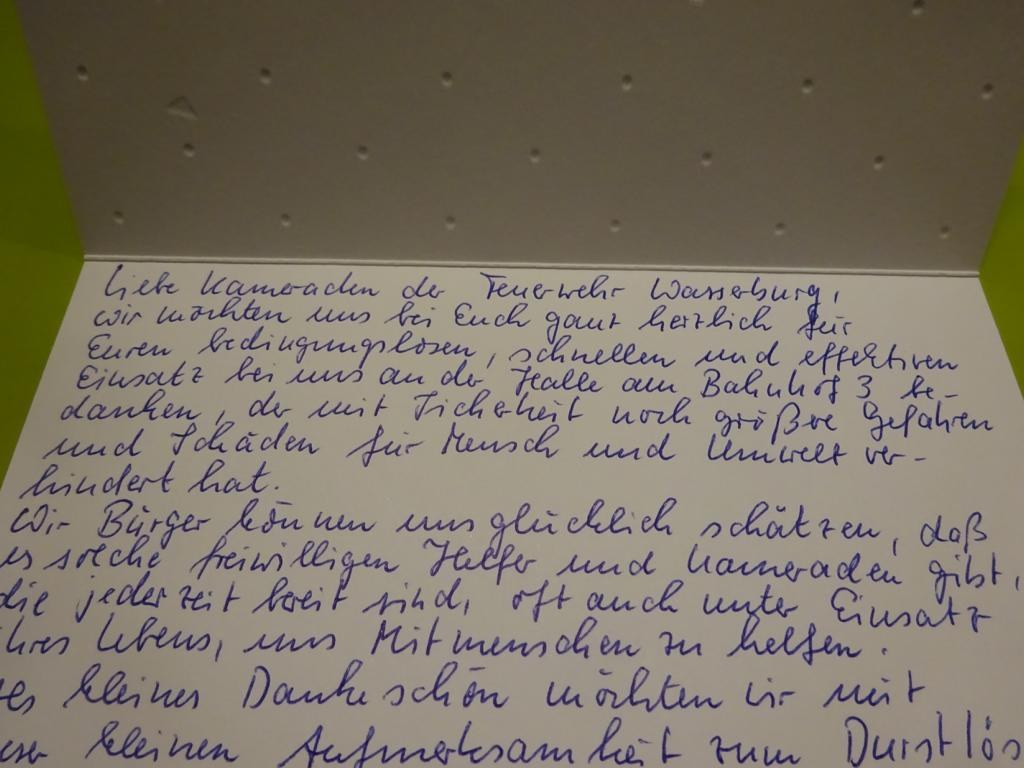 Liebe Kameraden der Feuerwehr Wasserburg,
wir möchten uns bei Euch ganz herzlich für
Euren bedingungslosen, schnellen und effektiven
Einsatz bei uns an der Halle am Bahnhof 3 be-
danken, der mit Sicherheit noch größere Gefahren
und Schäden für Mensch und Umwelt ver-
hindert hat.
Wir Bürger können uns glücklich schätzen, daß
es solche freiwilligen Helfer und Kameraden gibt,
die jederzeit bereit sind, oft auch unter Einsatz
ihres Lebens, uns Mitmenschen zu helfen.
kleines Dankeschön möchten wir mit
kleinen Aufmerksamkeit zum Durstlös